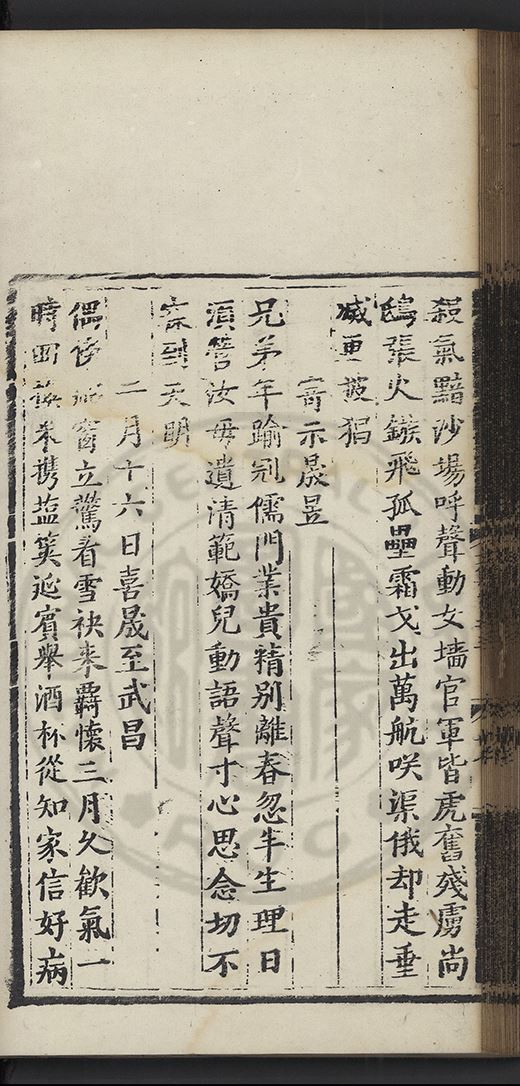 殺氣黯沙場呼聲動女墻官軍皆虎奮殘虜尚
鴟張火鏃飛孤壘霜戈出萬航咲渠俄却走垂
滅更披猖
寄示晟昱
兄弟年踰冠儒門業貴精別離春忽半生理日
須營汝毋遺清範嬌兒動語聲寸心思念切不
寐到天明
二月十六日喜晟至武昌
偶傍窓立驚看雪袂来羇懷三月久歡氣一
時回僕来携塩筴延賓舉酒杯從知家信好病